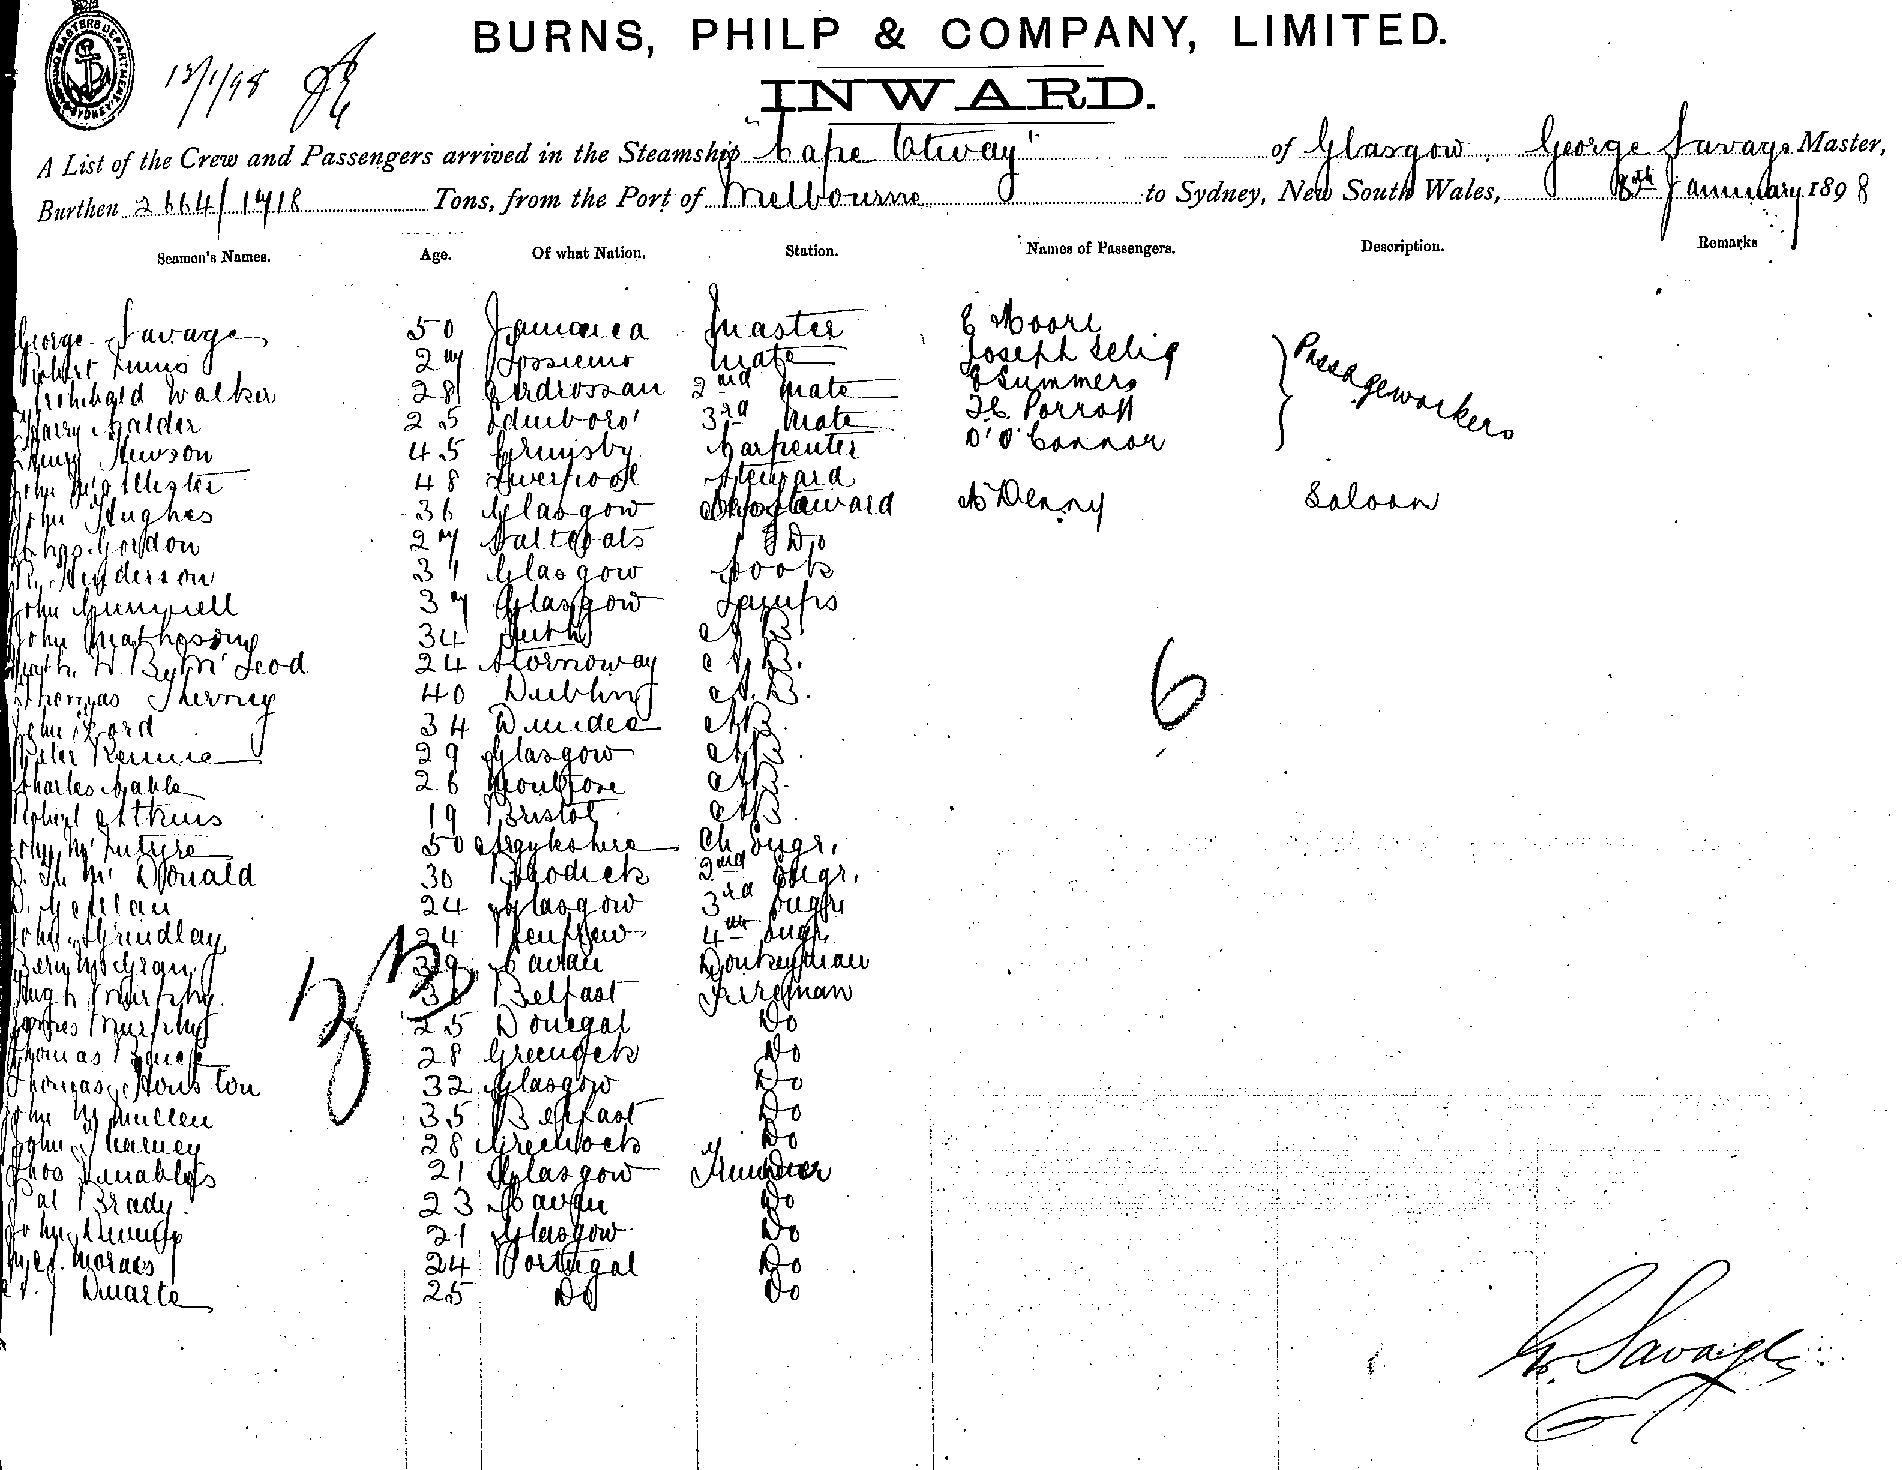 BURNS, PHILP & COMPANY, LIMITED.
13/1/98
INWARD.
A List of the Crew and Passengers arrived in the Steamship "Cape Otway" of Glasgow, George Savage Master,
Burthen 2664/1718 Tons, from the Port of Melbourne to Sydney, New South Wales, 8th January 1898
Seamen's Names. Age. Of what Nation. Station. Names of Passengers. Description. Remarks
George Savage 50 Jamaica Master E Moore
Robert 27 Mate Joseph Selig
Archibald Walker 28 Ardrossan 2nd Mate Summers Passageworkers
Harry Calder 25 Edinboro' 3rd Mate Parrott
Henry Hewson 45 Grimsby Carpenter D' O'Connor
John 48 Liverpool Steward
John Hughes 36 Glasgow Steward Denny Saloon
Gordon 27 Saltcoats Do
R. Henderson 31 Glasgow Cook
John 37 Glasgow Lamps
John Mathesone 34 Leith A.B.
McLeod 24 Stornoway A.B.
Thomas 40 Dublin A.B.
John Ford 34 Dundee AB.
Peter Rennie 29 Glasgow AB.
Charles 26 Montrose AB.
Robert Atkins 19 Bristol AB.
John McIntyre 50 Argyleshire Ch Engr.
McDonald 30 Brodick 2nd Engr.
24 Glasgow 3rd Engr
John Grindlay 24 Renfrew 4th Engr
39 Cavan Donkeyman
Hugh Murphy 36 Belfast Fireman
James Murphy 25 Donegal Do
Thomas 28 Greenock Do
Thomas Houston 32 Glasgow Do
John McMullen 35 Belfast Do
John Kearney 28 Greenock Do
Thos Venables 21 Glasgow Trimmer
Pat Brady 23 Cavan Do
John 21 Glasgow Do
Moraes 24 Portugal Do
Duarte 25 Do Do
33
6
G. Savage